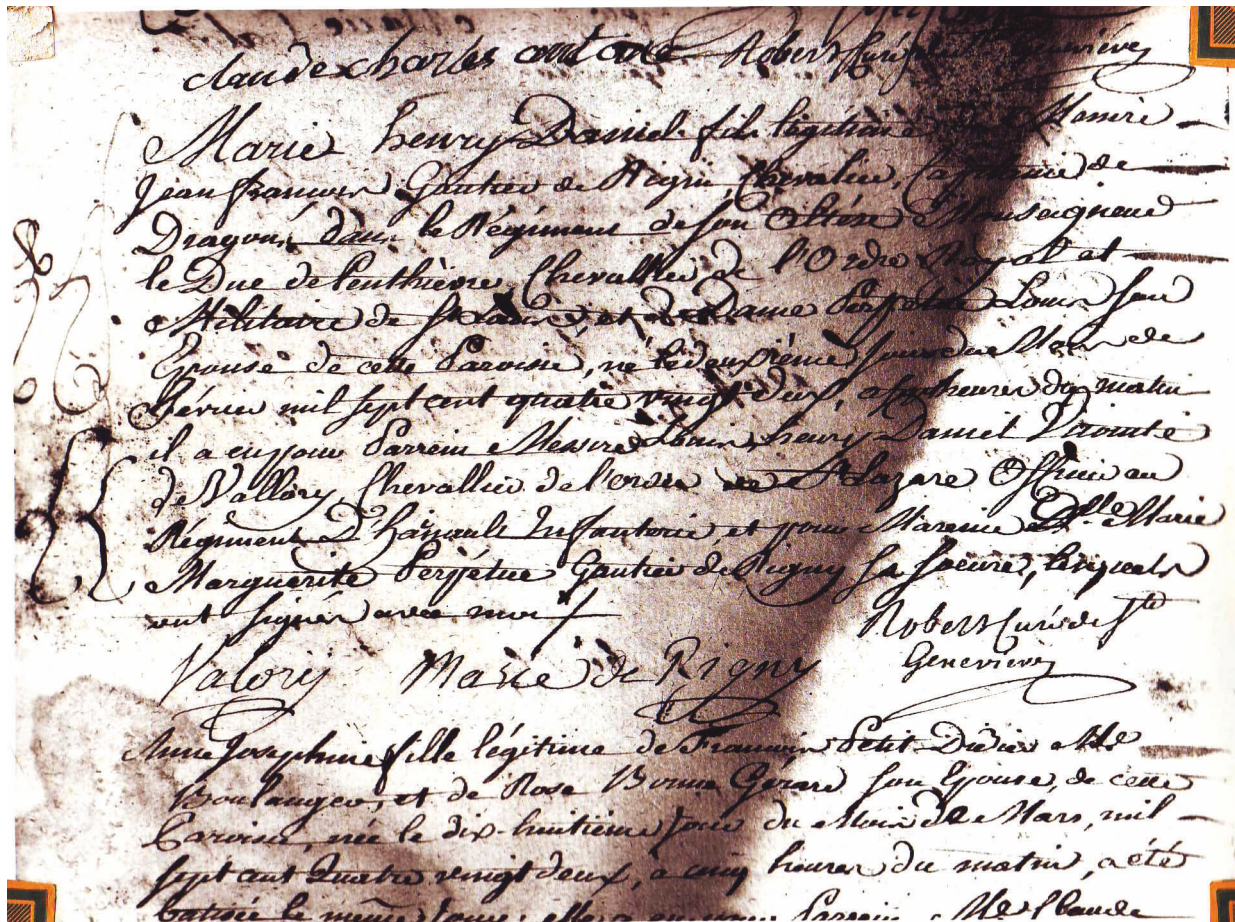 claude charles antoine Robert Curé de Ste Geneviève
Marie henry Daniel fils légitime de Messire
Jean françois Gautier de Rigny, Chevalier, Capitaine de
Dragons dans le Régiment de son Altesse Monseigneur
le Duc de Penthièvre, Chevallier de l'Ordre Royal et
Militaire de St Louis, et de Dame Perpétue Louis son
Epouse de cette Paroisse, né le deuxième jour du Mois de
Février mil sept cent quatre vingt deux, a heures du matin
il a eu pour Parrein Messire Louis henry Daniel Vicomte
de Vallory, Chevallier de l'ordre de St Lazare Officier au
Régiment D'hainault Infanterie, et pour Mareine Dlle Marie
Marguerite Perpétue Gautier de Rigny sa soeure, lesquels
ont signés avec moi
Robert Curé de Ste
Geneviève
Valory Marie de Rigny
Anne Josephine fille légitime de François Petit-Didier Me
Boulanger, et de Rose Gérard son Epouse, de cette
Paroisse, née le dix-huitième jour du Mois de Mars, mil
sept cent Quatre vingt deux, a cinq heures du matin, a été
batisée le même jour; elle a eu pour Parrein Claude